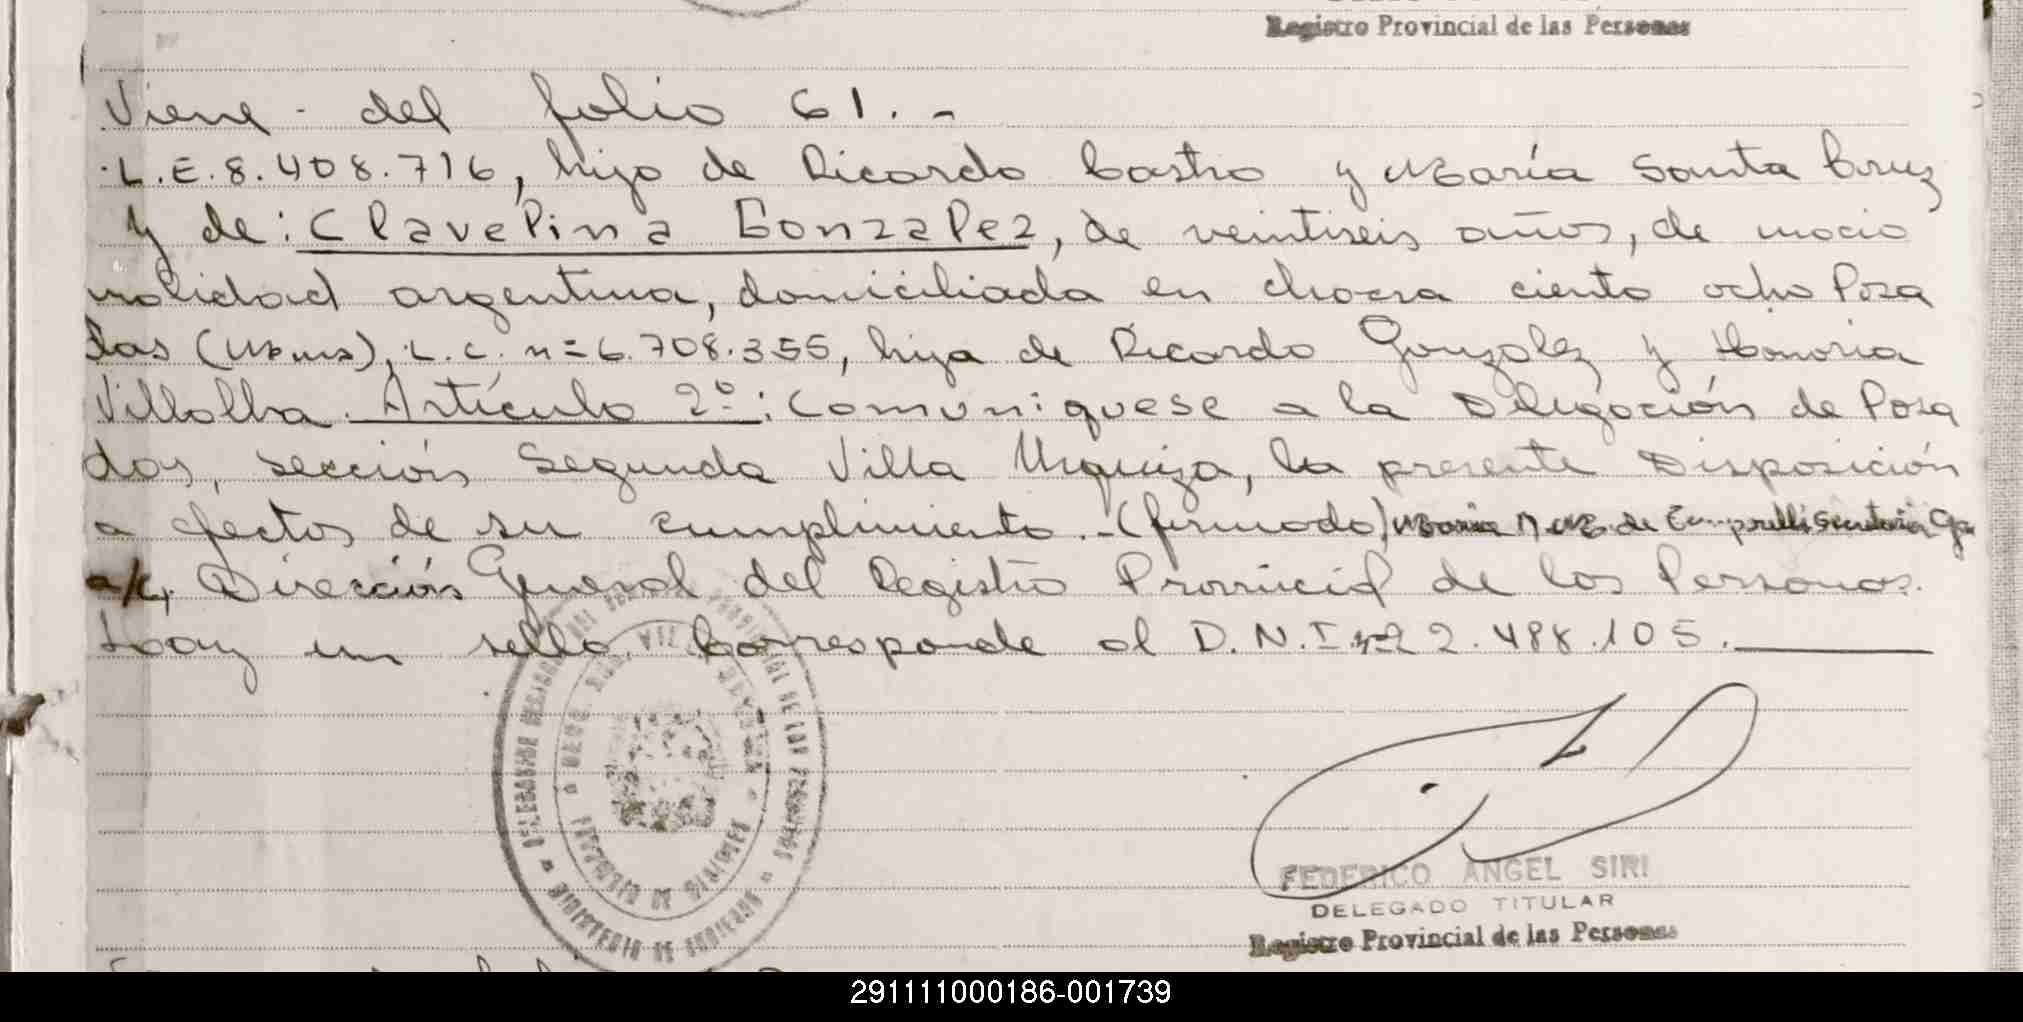 Registro Provincial de las Personas
Viene del folio 61.-
L.E. 8.408.716, hijo de Ricardo Castro y María Santa Cruz
y de: Clavelina Gonzalez, de veintiseis años, de nacio
nalidad argentina, domiciliada en chacra ciento ocho Posa
das (Mnes), L.C. n= 6.708.355, hija de Ricardo Gonzalez y Honoria
Villalba. Artículo 2º: Comuníquese a la Delegación de Posa
das, sección Segunda Villa Urquiza, la presente Disposición
a efectos de su cumplimiento.-(firmado) María M. de Secretaria
a/c, Dirección General del Registro Provincial de las Personas.
Hay un sello. Corresponde al D.N.I. nº 22.488.105.
FEDERICO ANGEL SIRI
DELEGADO TITULAR
Registro Provincial de las Personas
291111000186-001739